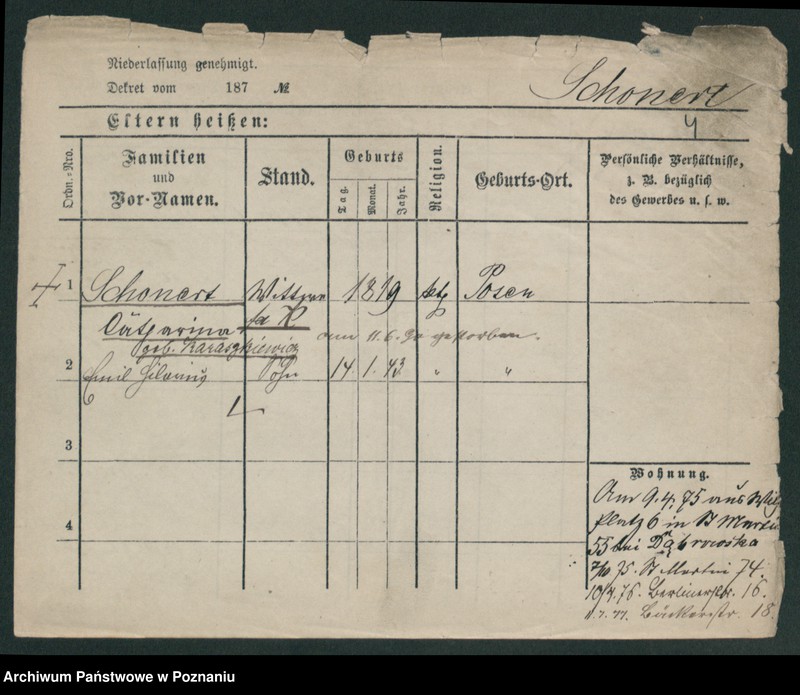 Niederlassung genehmigt.
Dekret vom 187 №
Schonert
Eltern heißen:
4
Ordn.-Nro.
Familien
und
Vor-Namen.
Stand.
Geburts
Tag.
Monat.
Jahr.
Religion.
Geburts-Ort.
Persönliche Verhältnisse,
z. B. bezüglich
des Gewerbes u. s. w.
1 Schonert Wittwe 1819 kth Posen
Catharina
geb. Karaszkiewicz
am 11.6.90 gestorben.
2 Emil Hilarius Sohn 14 1. 43 " "
3
4
Wohnung.
Am 9.4.75 aus
platz 6 in St Martin
55 bei Dąbrowska
7/10 75. St Martin 74.
10/4.76. Berlinerstr. 16.
11.7.77. Bäckerstr. 18
Archiwum Państwowe w Poznaniu